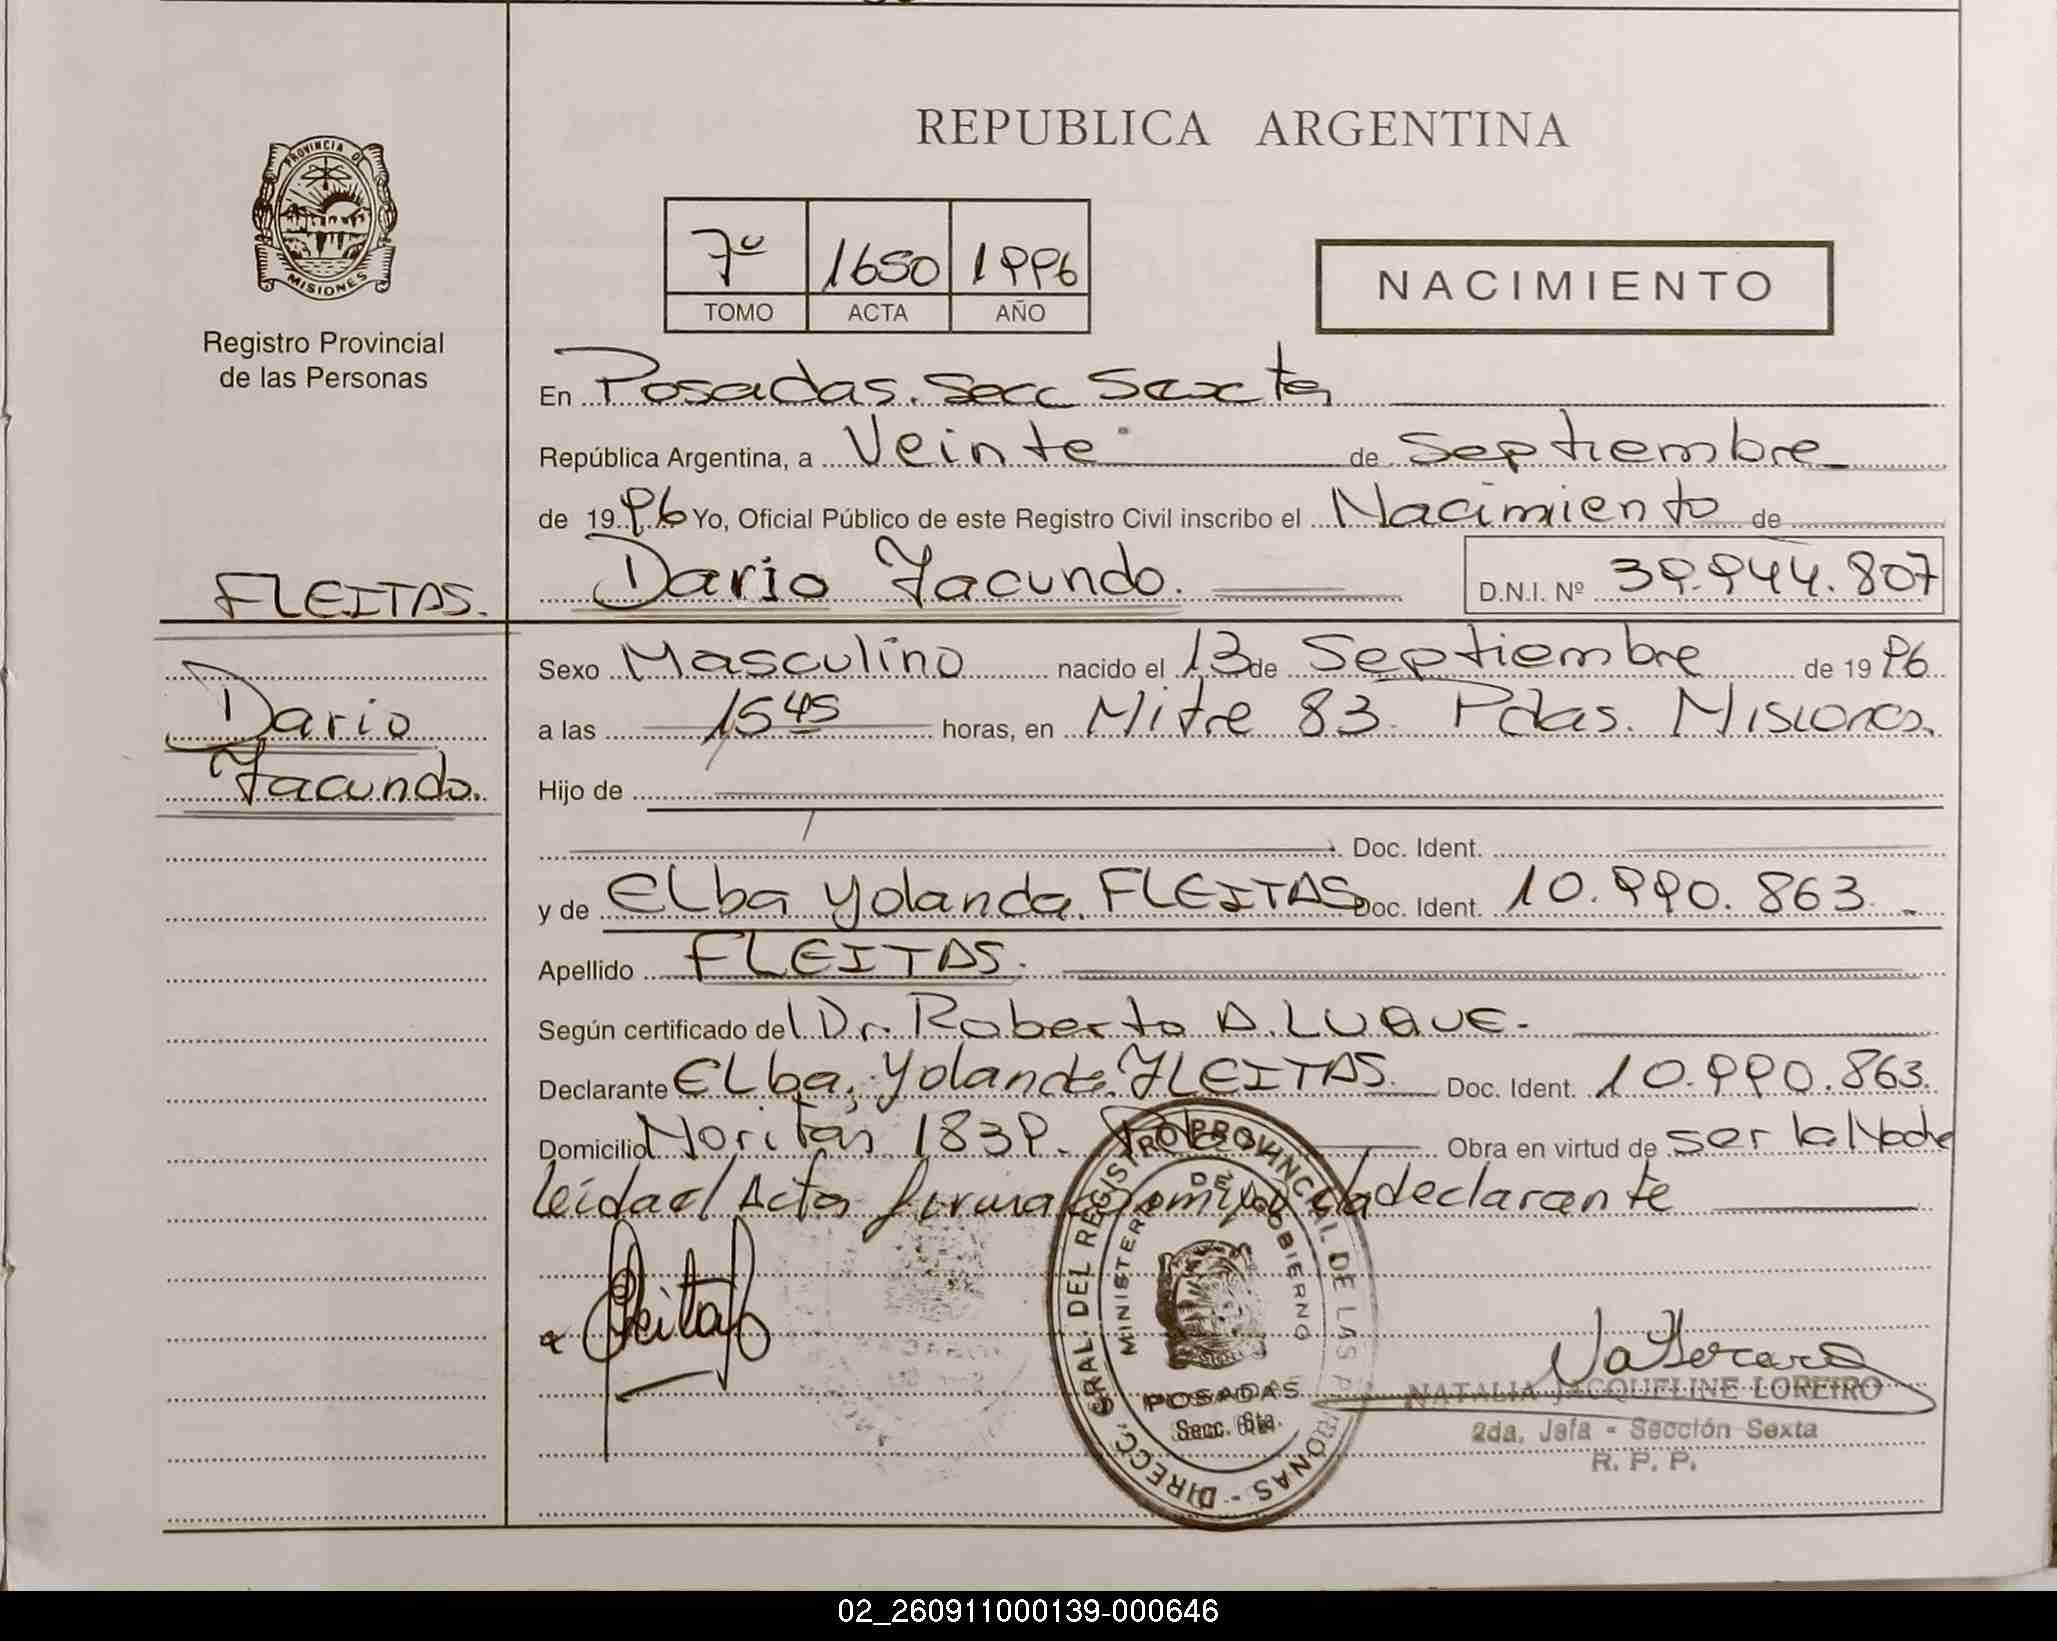 REPUBLICA ARGENTINA
PROVINCIA DE
MISIONES
Registro Provincial
de las Personas
7º 1650 1996
TOMO ACTA AÑO
NACIMIENTO
En Posadas. Secc Sexta
República Argentina, a Veinte de Septiembre
de 1996 Yo, Oficial Público de este Registro Civil inscribo el Nacimiento de
Dario Facundo. D.N.I. Nº 39.944.807
FLEITAS.
Dario
Facundo.
Sexo Masculino nacido el 13 de Septiembre de 1996
a las 15 45 horas, en Mitre 83. Pdas. Misiones.
Hijo de
Doc. Ident.
y de Elba Yolanda. FLEITAS Doc. Ident. 10.990.863
Apellido FLEITAS.
Según certificado del Dr. Roberto A. LUQUE.
Declarante Elba Yolanda FLEITAS. Doc. Ident. 10.990.863.
Domicilio 1839. Obra en virtud de ser la Madre
leida el Acta firma la declarante
Fleitas
DIRECC. GRAL DEL REGISTRO PROVINCIAL DE LAS PERSONAS
MINISTERIO DE GOBIERNO
POSADAS
Secc. 6ta.
NATALIA JACQUELINE LOREIRO
2da. Jefa - Sección Sexta
R. P. P.
02_260911000139-000646